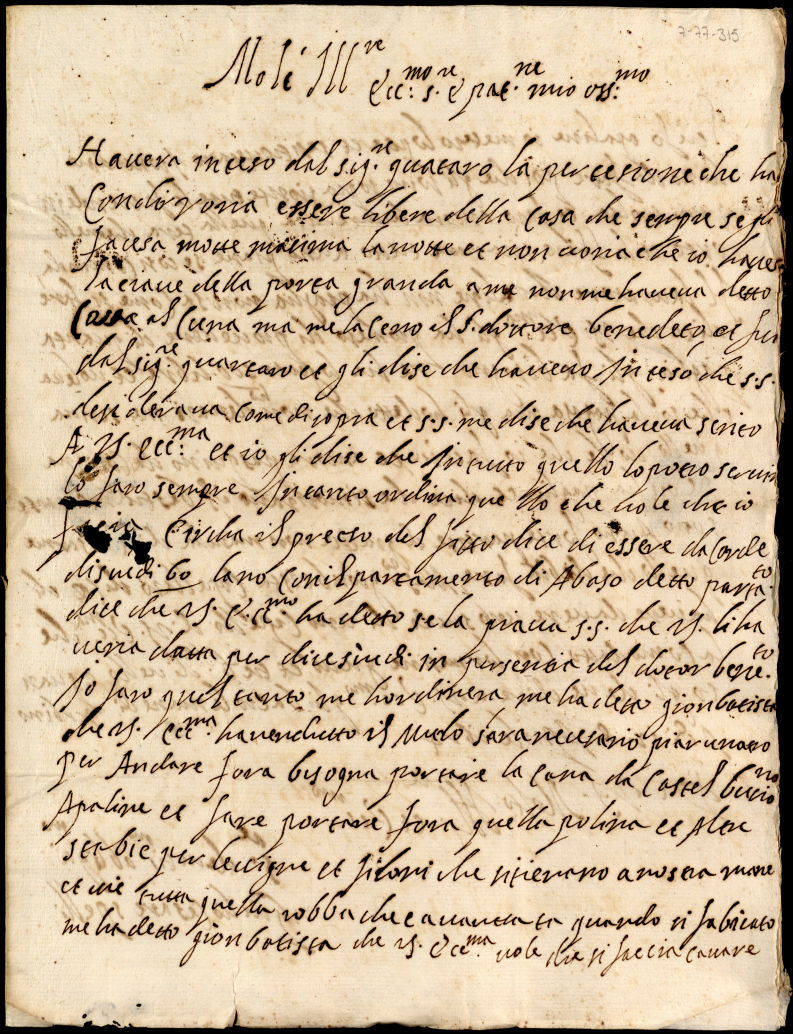 7-77-315
Molt Ill.re
ecc.mo s.re e pat.ne mio oss.mo
Havera inteso dal sig.re quataro la pertesione che ha
Condororia essere libere della casa che sempre se gli
facesa motte masima la notte et non voria che io haves
la ciave della porta granda a me non me haveva detto
al Cuna ma me la ceno il S. dottore benedeto et fui
dal sig.re quartaro et gli dise che haveno Inteso che s.s.
desiderava Come di sopra et s.s. me dise che haveva scrito
A V.S. ecc.ma et io gli dise che In tuto quello lo potro servire
lo faro sempre Intanto ordina quello che vole che io
facia Circha il precso del fitto dice di essere dacorde
di scudi 60 lano Con il partamento di Abaso detto parta.to
dice che V.S. Ecc.mo ha detto se la piava s.s. che V.S. li ha
veria datta per dice scudi in persentia del dotor bene.to
Io faro quel tanto me hordinera me ha detto gionbatista
che V.S. ecc.ma ha venduto il Mulo sara necesario piar unaltro
per Andare fora bisogna portare la cana da Castel bucio no
Apaline et fare portare fora quella polina et Altre
stabie per le vigne et filoni che si tierano a nostra mane
et vie tutta quella robba che e avantata quando si fabicato
me ha detto gionbatista che V.S. Ecc.ma vole che si faccia cavare